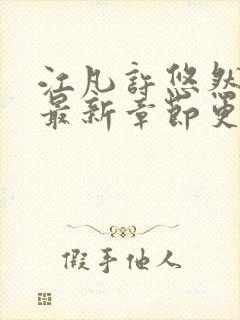 江凡許悠然
最新章節更
假手他人